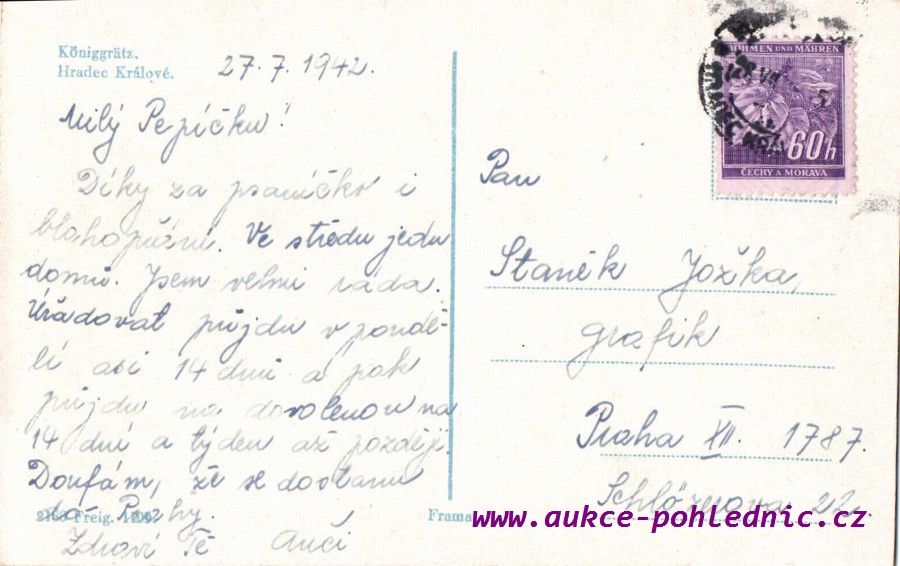 Königgrätz.
Hradec Králové.
27.7.1942.
Milý Pepíčku!
Díky za psaníčko i
blahopřání. Ve středu jedu
domů. Jsem velmi ráda.
Úřadovat půjdu v pondě-
lí asi 14 dní a pak
půjdu na dovolenou na
14 dní a týden až později.
Doufám, že se dostanu
do Prahy.
Zdraví Tě Anči
Freig.
BÖHMEN UND MÄHREN
60h
ČECHY A MORAVA
Pan
Staněk Jožka,
grafik
Praha XII. 1787.
Schlözerova 22.
www.aukce-pohlednic.cz